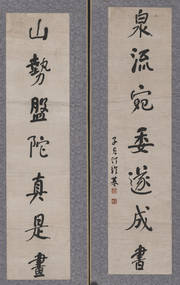 泉流宛委遂成書
山勢盤陀真是畫